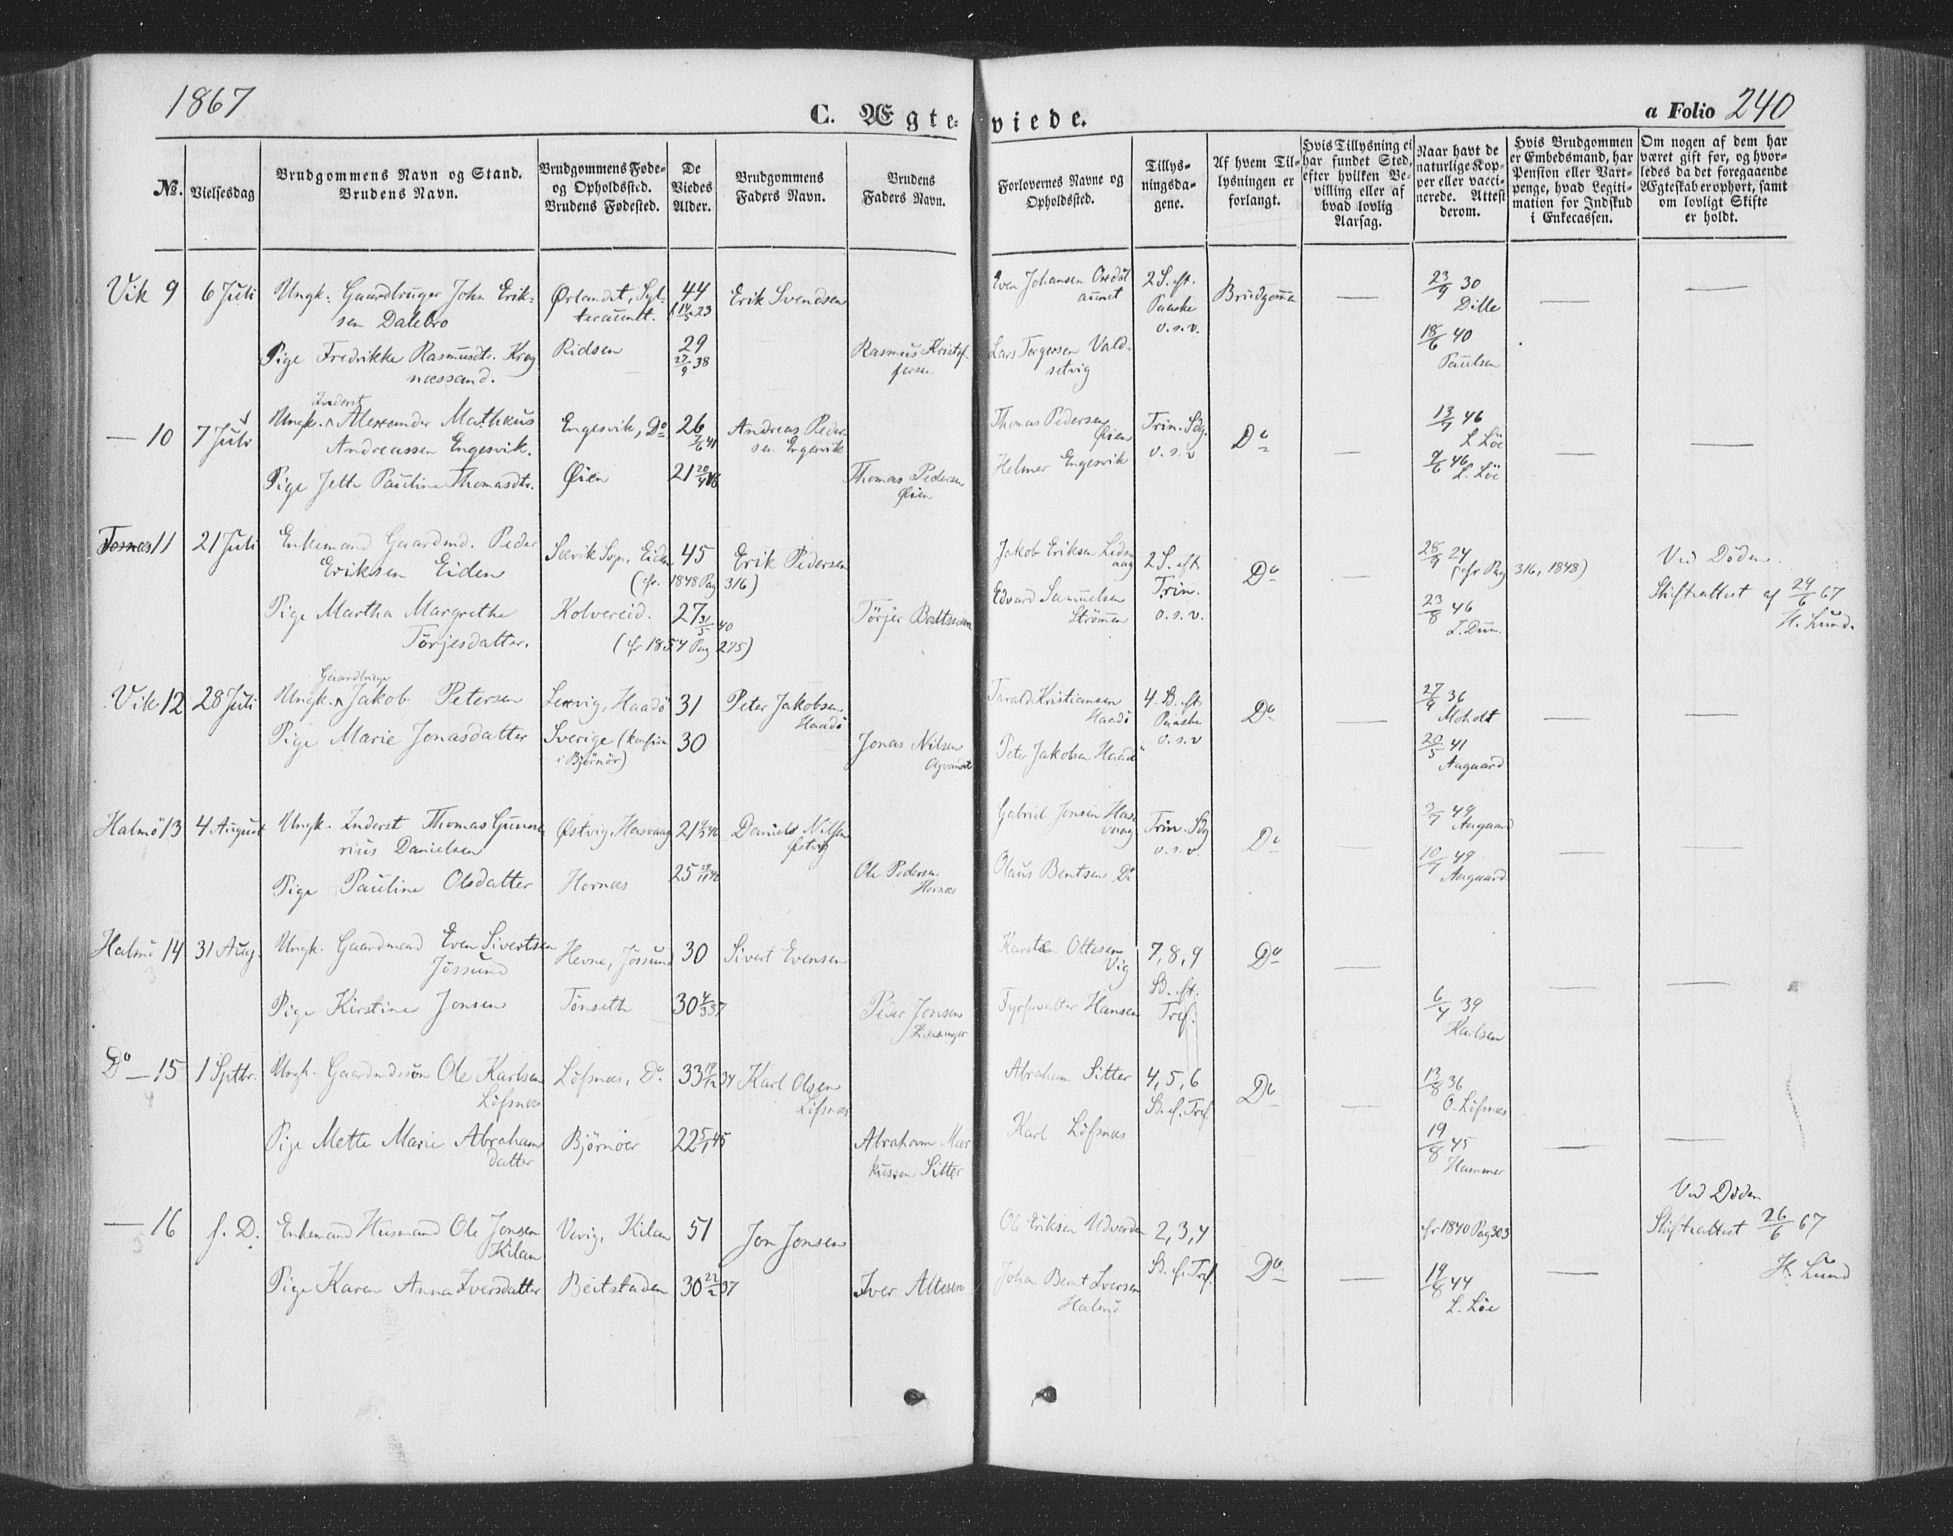 1867
C. Ægteviede.
a Folio 240
No.
Vielsesdag
Brudgommens Navn og Stand.
Brudens Navn.
Brudgommens Føde-
og Opholdssted.
Brudens Fødested.
De
Viedes
Alder.
Brudgommens
Faders Navn.
Brudens
Faders Navn.
Forlovernes Navne og
Opholdssted.
Tillys-
ningsda-
gene.
Af hvem Til-
lysningen er
forlangt.
Hvis Tillysning ei
har fundet Sted,
efter hvilken Be-
villing eller af
hvad lovlig
Aarsag.
Naar havt de
naturlige Kop-
per eller vacci-
nerede. Attest
derom.
Hvis Brudgommen
er Embedsmand, har
Pension eller Vart-
penge, hvad Legiti-
mation for Indskud
i Enkecassen.
Om nogen af dem har
været gift før, og hvor-
ledes da det foregaaende
Ægteskab er ophørt, samt
om lovligt Skifte
er holdt.
Vik 9 6 Juli Ungk. Gaardbruger John Erik-
sen Dalebro
Ørlandet, 44 14/5 23 Erik Svendsen
Even Johansen
2 S. eft.
Paaske
o.s.v.
Brudgommen
23/9 30
Dille
Pige Fredrikke Rasmusdtr. Krog
næssand.
Ridsen 29 27/9 38
Rasmus Kristof-
fersen
Lars Torgersen Vald-
setvig
18/6 40
Paulsen
— 10 7 Juli
Inderst
Ungk. Alexander Matheus
Andreassen Engesvik.
Engesvik, Do 26 7/6 41
Andreas Peder-
sen Engesvik
Thomas Pedersen
Øien
Trin. Sdg.
o.s.v
Do
13/7 46
L. Löe
Pige Jette Pauline Thomasdtr. Øien 21 20/4 46
Thomas Pedersen
Øien
Helmer Engesvik
9/6 46
L. Löe
11 21 Juli Enkemand Gaardmd. Peder
Eriksen Eiden
Sævik Sogn, Eiden 45 Erik Pedersen
(cfr. 1848 Pag 316)
Jakob Eriksen
2 S. eft
Trin.
o.s.v.
Do
28/9 24
(cfr Pag 316, 1848)
Ved Døden.
Skifteattest af 24/6 67
H. Lund.
Pige Martha Margrethe
Törjesdatter.
Kolvereid. 27 31/5 40
(cfr 1857 Pag 275)
Törjer Boltsersen
Edvard Samuelsen
Strömmen
23/8 46
Vik 12 28 Juli
Gaardbruger
Ungk. Jakob Petersen
Lervig, Haadö 31 Peter Jakobsen
Haadö
Tarald Kristiansen
Haadö
4. S. eft
Paaske
o.s.v
Do
27/9 36
Moholt
Pige Marie Jonasdatter
Sverige (konfirm
i Bjørnör) 30
Jonas Nilsen
Peter Jakobsen Haadö
20/5 41
Aagaard
Halmö 13 4 August Ungk. Inderst Thomas Gunne-
rius Danielsen
Østvig, Hasvaag 21
Daniels Nilsen
Østvig
Gabriel Jensen Has-
vaag
Trin. Sdg
o.s.v.
Do
3/7 49
Aagaard
Pige Pauline Olsdatter Hornæs 25
Ole Pedersen
Hornæs
Olaus Bentsen Do
10/7 49
Aagaard
Halmö 14 31 Aug. Ungk. Gaardmand Even Sivertsen
Jössund
Hevne, Jössund 30 Sivert Evensen
Karsten Ottesen
Vig
7, 8, 9
Sd. eft.
Tref.
Do
Pige Kirstine Jensen Tönseth 30 4/3 37
Peder Jensen
Fyrforvalter Hansen
6/7 39
Karlsen
Do — 15 1 Septbr. Ungk. Gaardmdssön Ole Karlsen
Löfsnæs
Löfsnæs, Do 33 19/12 34 Karl Olsen
Löfsnæs
Abraham Sitter
4, 5, 6
S. e. Tref
Do
13/8 36
O. Löfsnæs
Pige Mette Marie Abrahams
datter
Bjørnöer 22 5/1 45
Abraham Mar-
kussen Sitter
Karl Löfsnæs
19/8 45
Hammer
— 16 s. D. Enkemand Husmand Ole Jonsen
Kilan
Vevig, Kilan 51 Jon Jonsen
Ole Eriksen Udvorden
2, 3, 4
S. e. Tref.
Do
cfr 1840 Pag 303
Ved Døden
Skifteattest 26/6 67
H. Lund
Pige Karen Anna Iversdatter Beitstaden 30 22/2 37
Iver Altesen
Johan Bernt Iversen
Halmö
19/8 44
L. Löe